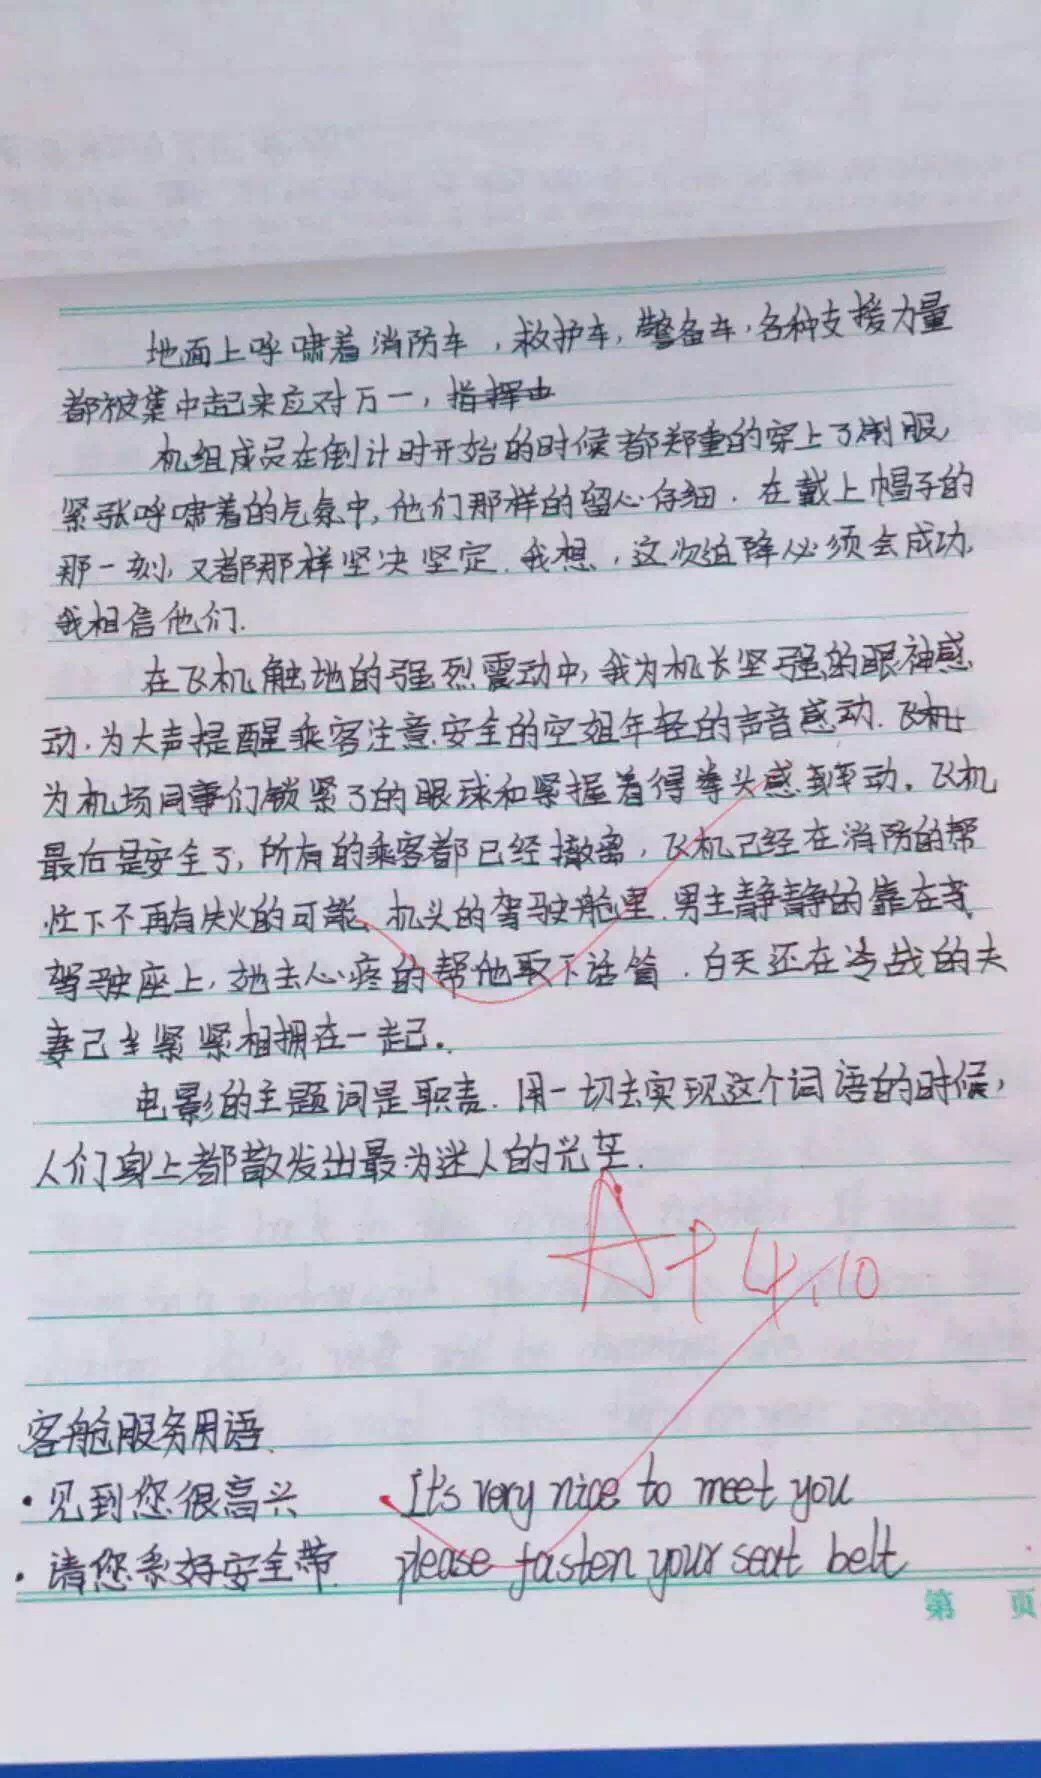 地面上呼啸着消防车，救护车，警备车，各种支援力量
都被集中起来应对万一，指挥中
机组成员在倒计时开始的时候都郑重的穿上了制服，
紧张呼啸着的气氛中，他们那样的留心仔细．在戴上帽子的
那一刻，又都那样坚决坚定．我想，这次迫降必须会成功，
我相信他们．
在飞机触地的强烈震动中，我为机长坚强的眼神感
动．为大声提醒乘客注意安全的空姐年轻的声音感动．飞机
为机场同事们锁紧了的眼球和紧握着得拳头感到动．飞机
最后是安全了，所有的乘客都已经撤离，飞机已经在消防的帮
忙下不再有失火的可能．机头的驾驶舱里．男主静静的靠在
驾驶座上，她去心疼的帮他取下话筒．白天还在冷战的夫
妻已经紧紧相拥在一起．
电影的主题词是职责．用一切去实现这个词语的时候，
人们身上都散发出最为迷人的光芒．
A+ 4.10
客舱服务用语．
·见到您很高兴 It's very nice to meet you
·请您系好安全带． please fasten your seat belt
第 页